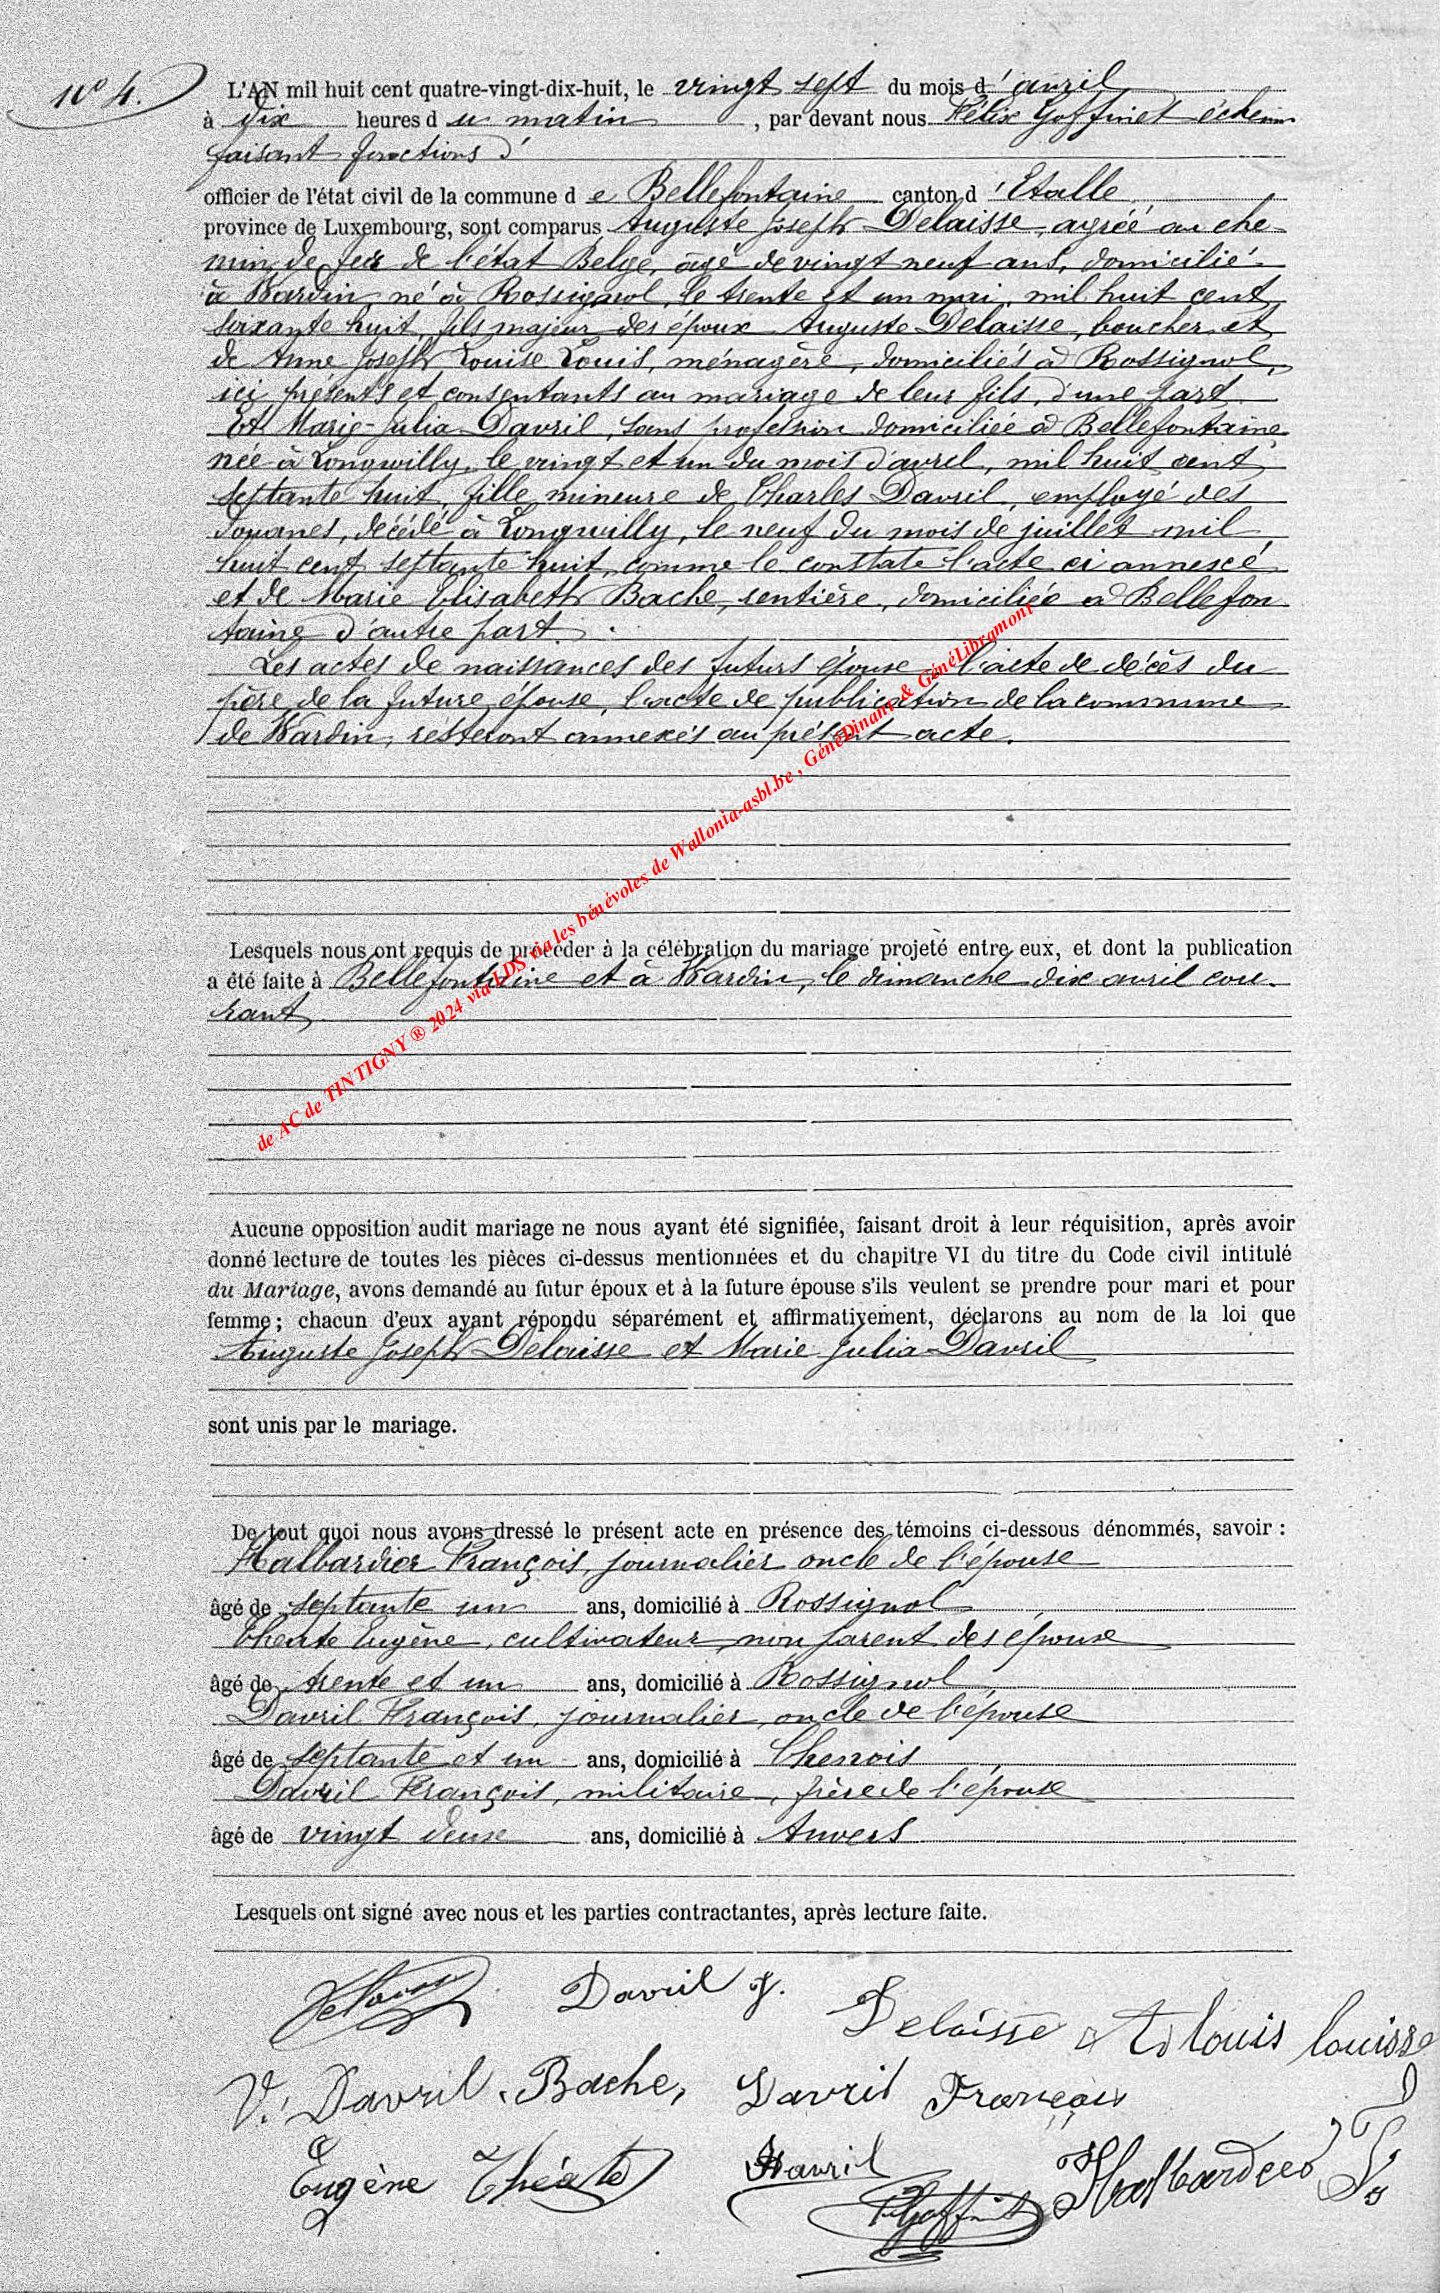 N° 4.
L'AN mil huit cent quatre-vingt-dix-huit, le vingt sept du mois d'avril
à dix heures du matin, par devant nous Félix Goffinet échevin
faisant fonctions d'
officier de l'état civil de la commune de Bellefontaine canton d'Etalle
province de Luxembourg, sont comparus Auguste Joseph Delaisse, agréé au che
min de fer de l'état Belge, âgé de vingt neuf ans, domicilié
à Wardin, né à Rossignol, le trente et un mai, mil huit cent
soixante huit, fils majeur des époux Auguste Delaisse, boucher et
de Anne Joseph Louise Louis, ménagère, domiciliés à Rossignol,
ici présents et consentants au mariage de leur fils, d'une part.
Et Marie-Julia Davril, sans profession domiciliée à Bellefontaine,
née à Longwilly, le vingt et un du mois d'avril, mil huit cent
septante huit, fille mineure de Charles Davril, employé des
douanes, décédé à Longwilly, le neuf du mois de juillet mil
huit cent septante huit, comme le constate l'acte ci annexé
et de Marie Elisabeth Bache, rentière, domiciliée à Bellefon
taine d'autre part.
Les actes de naissances des futurs épouse, l'acte de décès du
père de la future épouse, l'acte de publication de la commune
de Wardin, resteront annexés au présent acte.
Lesquels nous ont requis de procéder à la célébration du mariage projeté entre eux, et dont la publication
a été faite à Bellefontaine et à Wardin, le dimanche dix avril cou-
rant
de AC de TINTIGNY ® 2024 via LDS via les bénévoles de Wallonia-asbl.be , GénéDinant & GénéLibramont
Aucune opposition audit mariage ne nous ayant été signifiée, faisant droit à leur réquisition, après avoir
donné lecture de toutes les pièces ci-dessus mentionnées et du chapitre VI du titre du Code civil intitulé
du Mariage, avons demandé au futur époux et à la future épouse s'ils veulent se prendre pour mari et pour
femme ; chacun d'eux ayant répondu séparément et affirmativement, déclarons au nom de la loi que
Auguste Joseph Delaisse et Marie Julia Davril
sont unis par le mariage.
De tout quoi nous avons dressé le présent acte en présence des témoins ci-dessous dénommés, savoir :
Halbardier François, journalier oncle de l'épouse
âgé de septante un ans, domicilié à Rossignol
Théate Eugène, cultivateur, non parent des époux
âgé de trente et un ans, domicilié à Rossignol
Davril François, journalier, oncle de l'épouse
âgé de septante et un ans, domicilié à Chenois
Davril François, militaire, frère de l'épouse
âgé de vingt deux ans, domicilié à Anvers
Lesquels ont signé avec nous et les parties contractantes, après lecture faite.
Delaisse Davril J. Delaisse A Louis louisse
V. Davril. Bache, Davril François
Eugène Théate Davril
Goffinet